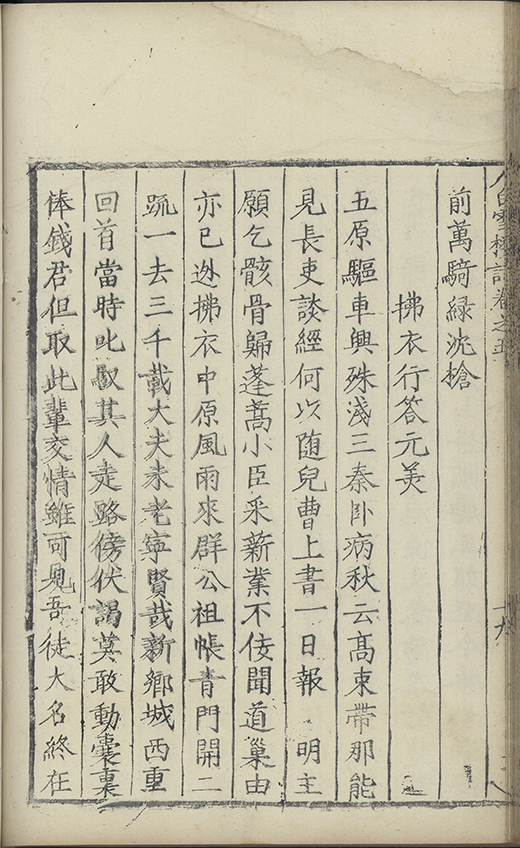 白雪樓詩卷之五
前萬騎緑沈槍
拂衣行答元美
五原驅車興殊淺三秦卧病秋云髙束帶那能
見長吏談經何以随兒曹上書一日報 明主
願乞骸骨歸蓬蒿小臣采薪業不佞聞道巢由
亦已迯拂衣中原風雨來群公祖帳青門開二
䟽一去三千載大夫未老寧賢哉新鄉城西重
回首當時叱馭其人走路傍伏謁莫敢動囊裏
俸錢君但取此輩交情雖可見吾徒大名終在